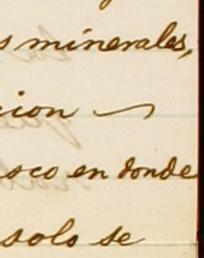 s minerales,
cion
sco en donde
solo se